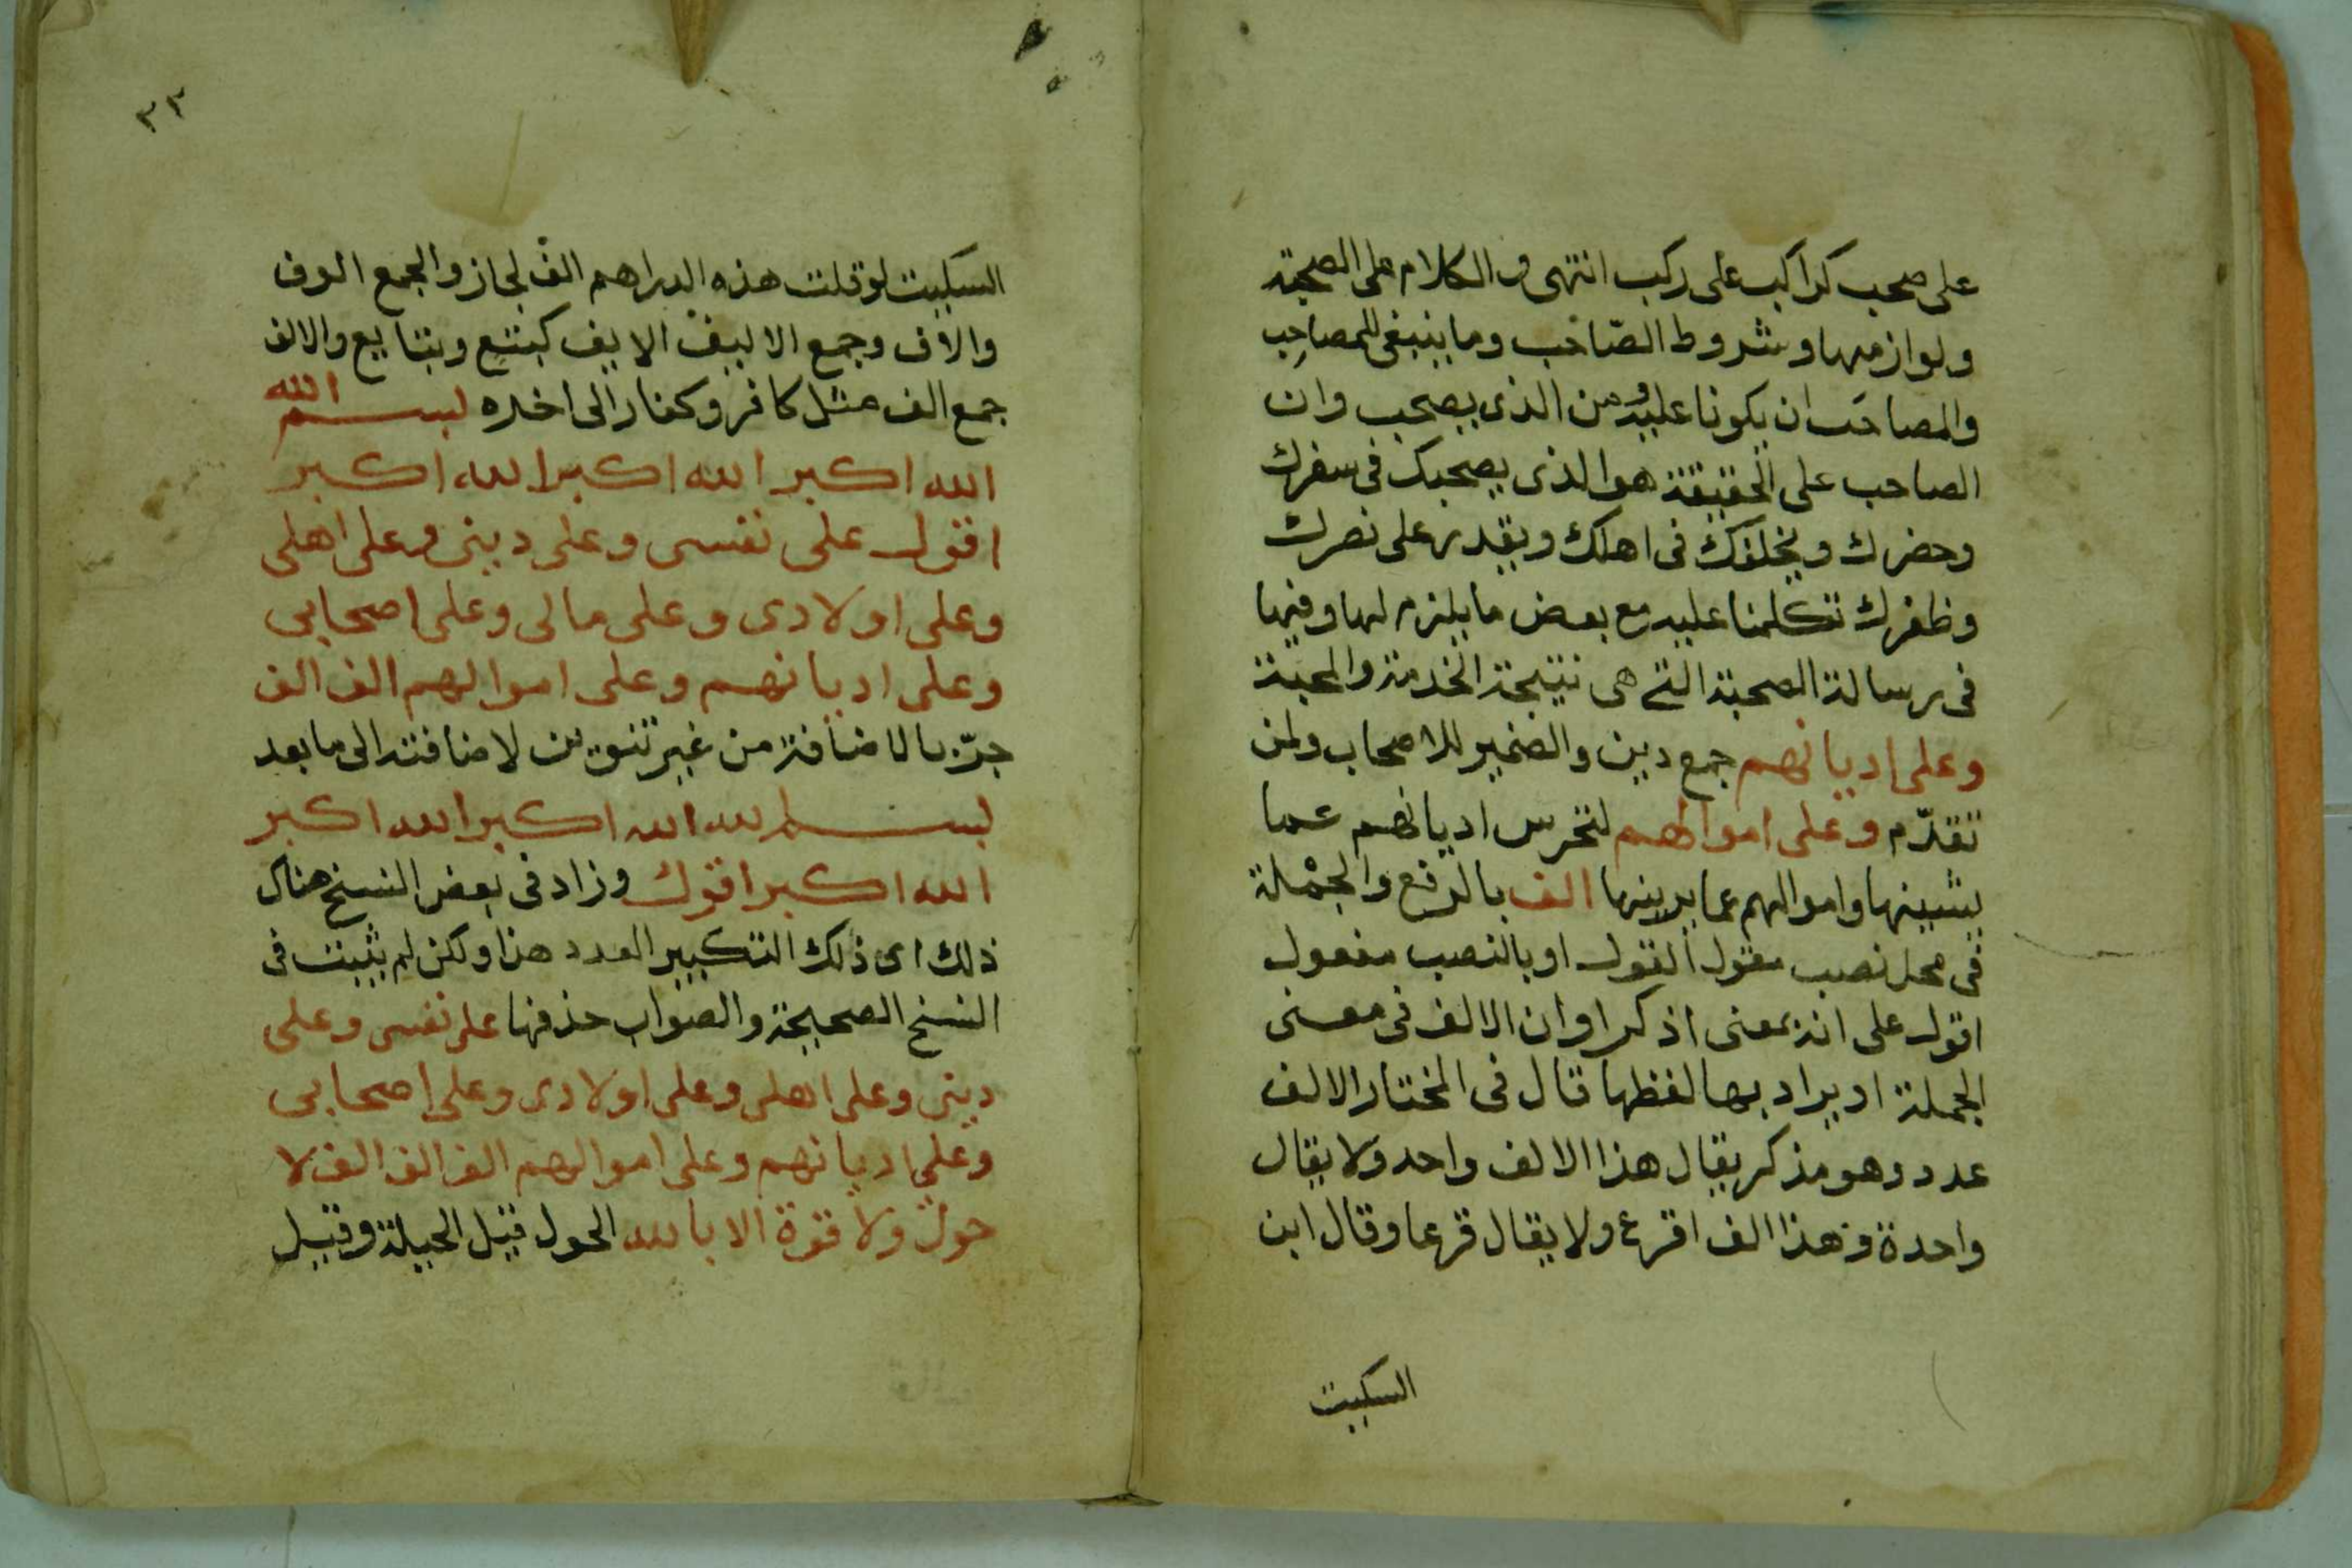 على صحب كراكب على ركب انتهى والكلام على الصحبة
ولوازمها وشروط الصّاحب وما ينبغى للمصاحِب
والمصاحَب ان يكونا عليه ومن الذى يصحب وان
الصاحب على الحقيقة هو الذى يصحبك فى سفرك
وحضرك ويخلفك فى اهلك ويقدر على نصرك
وظفرك تكلمنا عليه مع بعض ما يلزم لها وفيها
فى رسالة الصحبة التى هى نتيجة الخدمة والمحبة
وعلى اديانهم جمع دين والضمير للاصحاب ولمن
تقدّم وعلى اموالهم لتحرس اديانهم عما
يشينها واموالهم عما يرينها الف بالرفع والجملة
فى محل نصب مقول القول او بالنصب مفعول
اقول على انه بمعنى اذكر او ان الالف فى معنى
الجملة او يراد بها لفظها قال فى المختار الالف
عدد وهو مذكر يقال هذا الالف واحد ولا يقال
واحدة وهذا الف اقرع ولا يقال قرعا وقال ابن
السكيت
٣٣
السكيت لو قلت هذه الدراهم الف لجاز والجمع الوف
والاف وجمع الاليف الايف كبتيع وبتايع والالف
جمع الف مثل كافر وكفار الى اخره بسم الله
الله اكبر الله اكبر الله اكبر
اقول على نفسى وعلى دينى وعلى اهلى
وعلى اولادى وعلى مالى وعلى اصحابى
وعلى اديانهم وعلى اموالهم الف الف
جرّ بالاضافة من غير تنوين لاضافته الى ما بعد
بسم الله الله اكبر الله اكبر
الله اكبر اقول وزاد فى بعض النسخ هناك
ذلك اى ذلك التكبير العدد هذا ولكن لم يثبت فى
النسخ الصحيحة والصواب حذفها على نفسى وعلى
دينى وعلى اهلى وعلى اولادى وعلى اصحابى
وعلى اديانهم وعلى اموالهم الف الف الف لا
حول ولا قوة الا بالله الحول قيل الحيلة وقيل